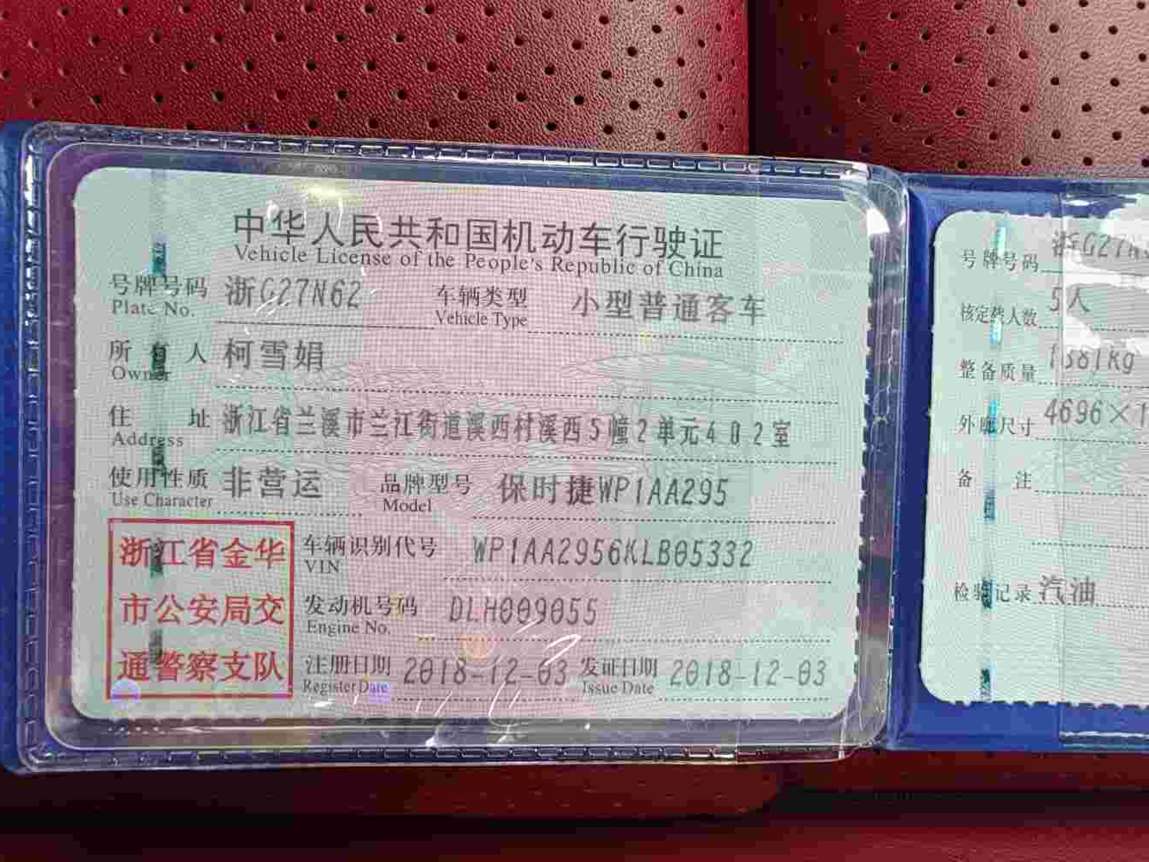 中华人民共和国机动车行驶证
Vehicle License of the People's Republic of China
号牌号码 浙G27N62 车辆类型 小型普通客车
Plate No. Vehicle Type
所有人 柯雪娟
Owner
住址 浙江省兰溪市兰江街道溪西村溪西5幢2单元402室
Address
使用性质 非营运 品牌型号 保时捷WP1AA295
Use Character Model
浙江省金华
市公安局交
通警察支队
车辆识别代号 WP1AA2956KLB05332
VIN
发动机号码 DLH009055
Engine No.
注册日期 2018-12-03 发证日期 2018-12-03
Register Date Issue Date
号牌号码 浙G27N
核定载人数 5人
整备质量 1881kg
外廓尺寸 4696×1
备注
检验记录 汽油